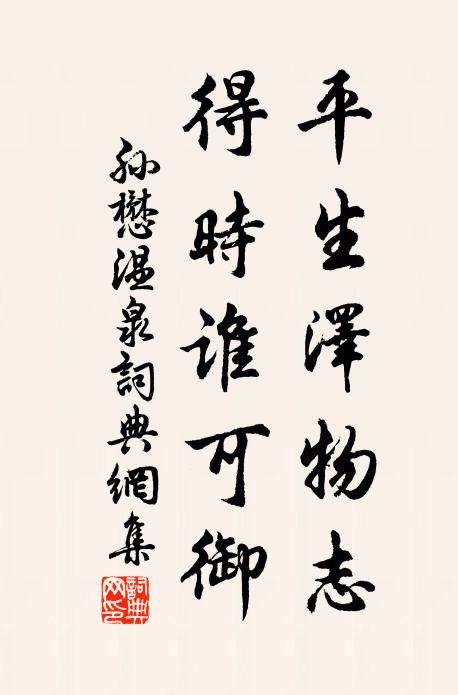 平生澤物志
得時誰可御
孫懋溫泉詞典網集
詞典網印